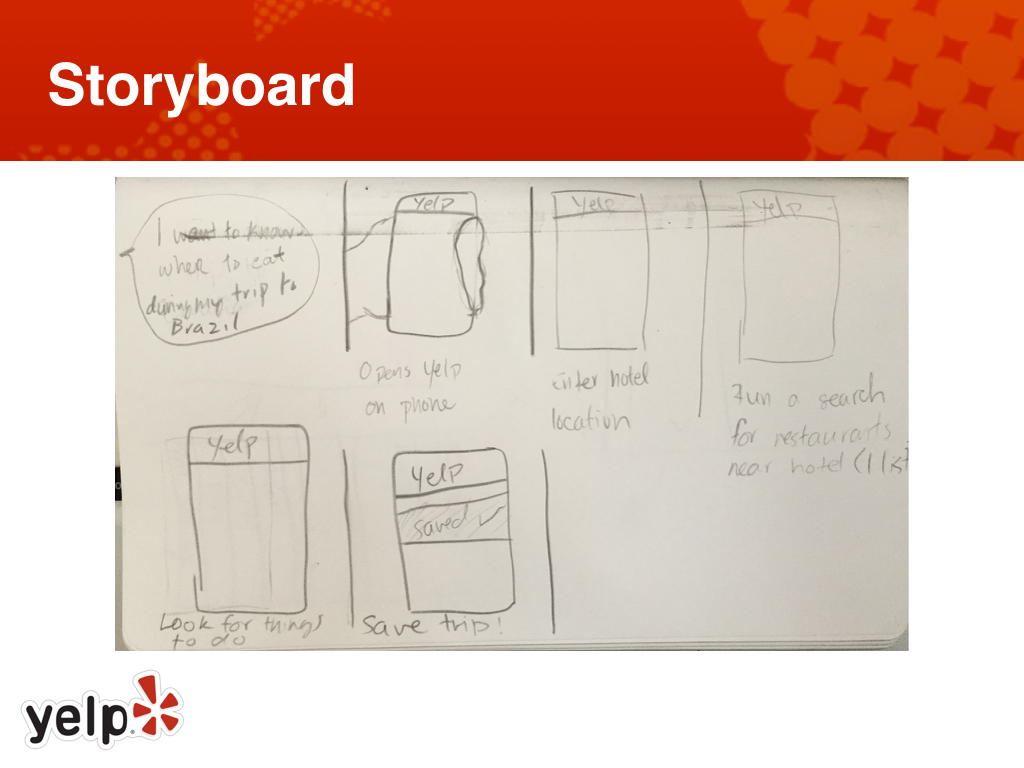 Storyboard
I want to know
when to eat
during my trip to
Brazil
yelp
Opens yelp
on phone
yelp
Enter hotel
location
yelp
Run a search
for restaurants
near hotel
yelp
Look for things
to do
yelp
saved
Save trip!
yelp